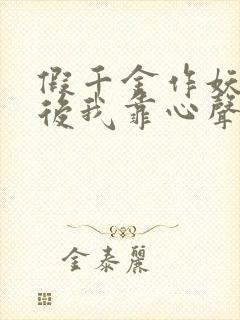 假千金作妖
後我靠心聲
金泰麗